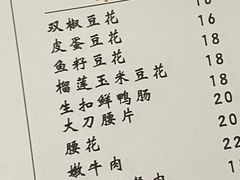 双椒豆花 16
皮蛋豆花 16
鱼籽豆花 18
榴莲玉米豆花 18
生扣鲜鸭肠 18
大刀腰片 18
腰花 18
嫩牛肉 22